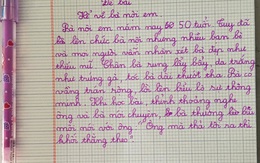 Đề bài
Kể về bà nội em.
Bà nội em năm nay 50 tuổi. Tuy đã
lên chức bà nội nhưng nhiều bạn bè
và mọi người vẫn nhận xét bà đẹp như
thiếu nữ. Chân bà rung lẩy bẩy, da trắng
như trứng gà, tóc bà dài thướt tha. Bà có
vầng trán rộng, là lên biểu lộ sự thông
minh. Khi học bài, thỉnh thoảng nghe
ông và bà nói chuyện, bà thường
mới nói với ông: "Ông mà thái tôi ra thì
khối thằng theo".